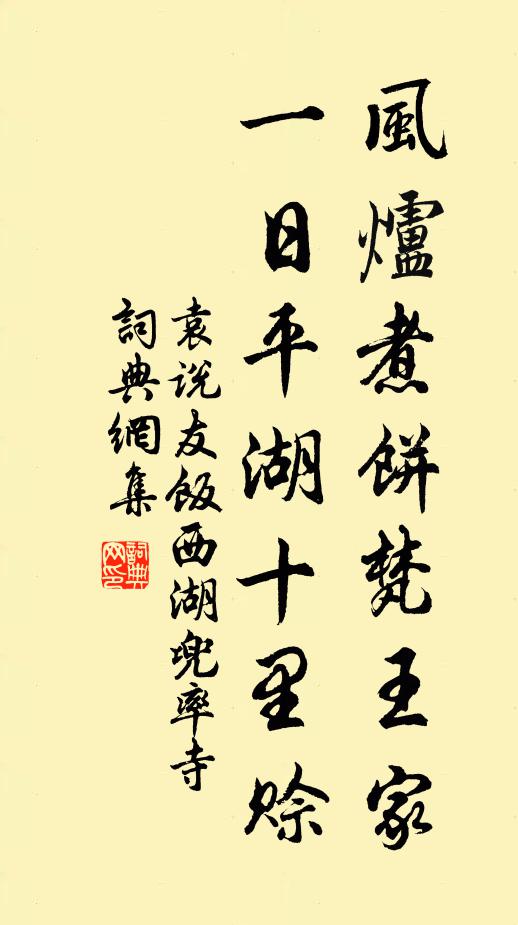 風爐煮餅梵王家
一日平湖十里賒
袁说友飯西湖兜率寺
詞典網集
詞典
网印